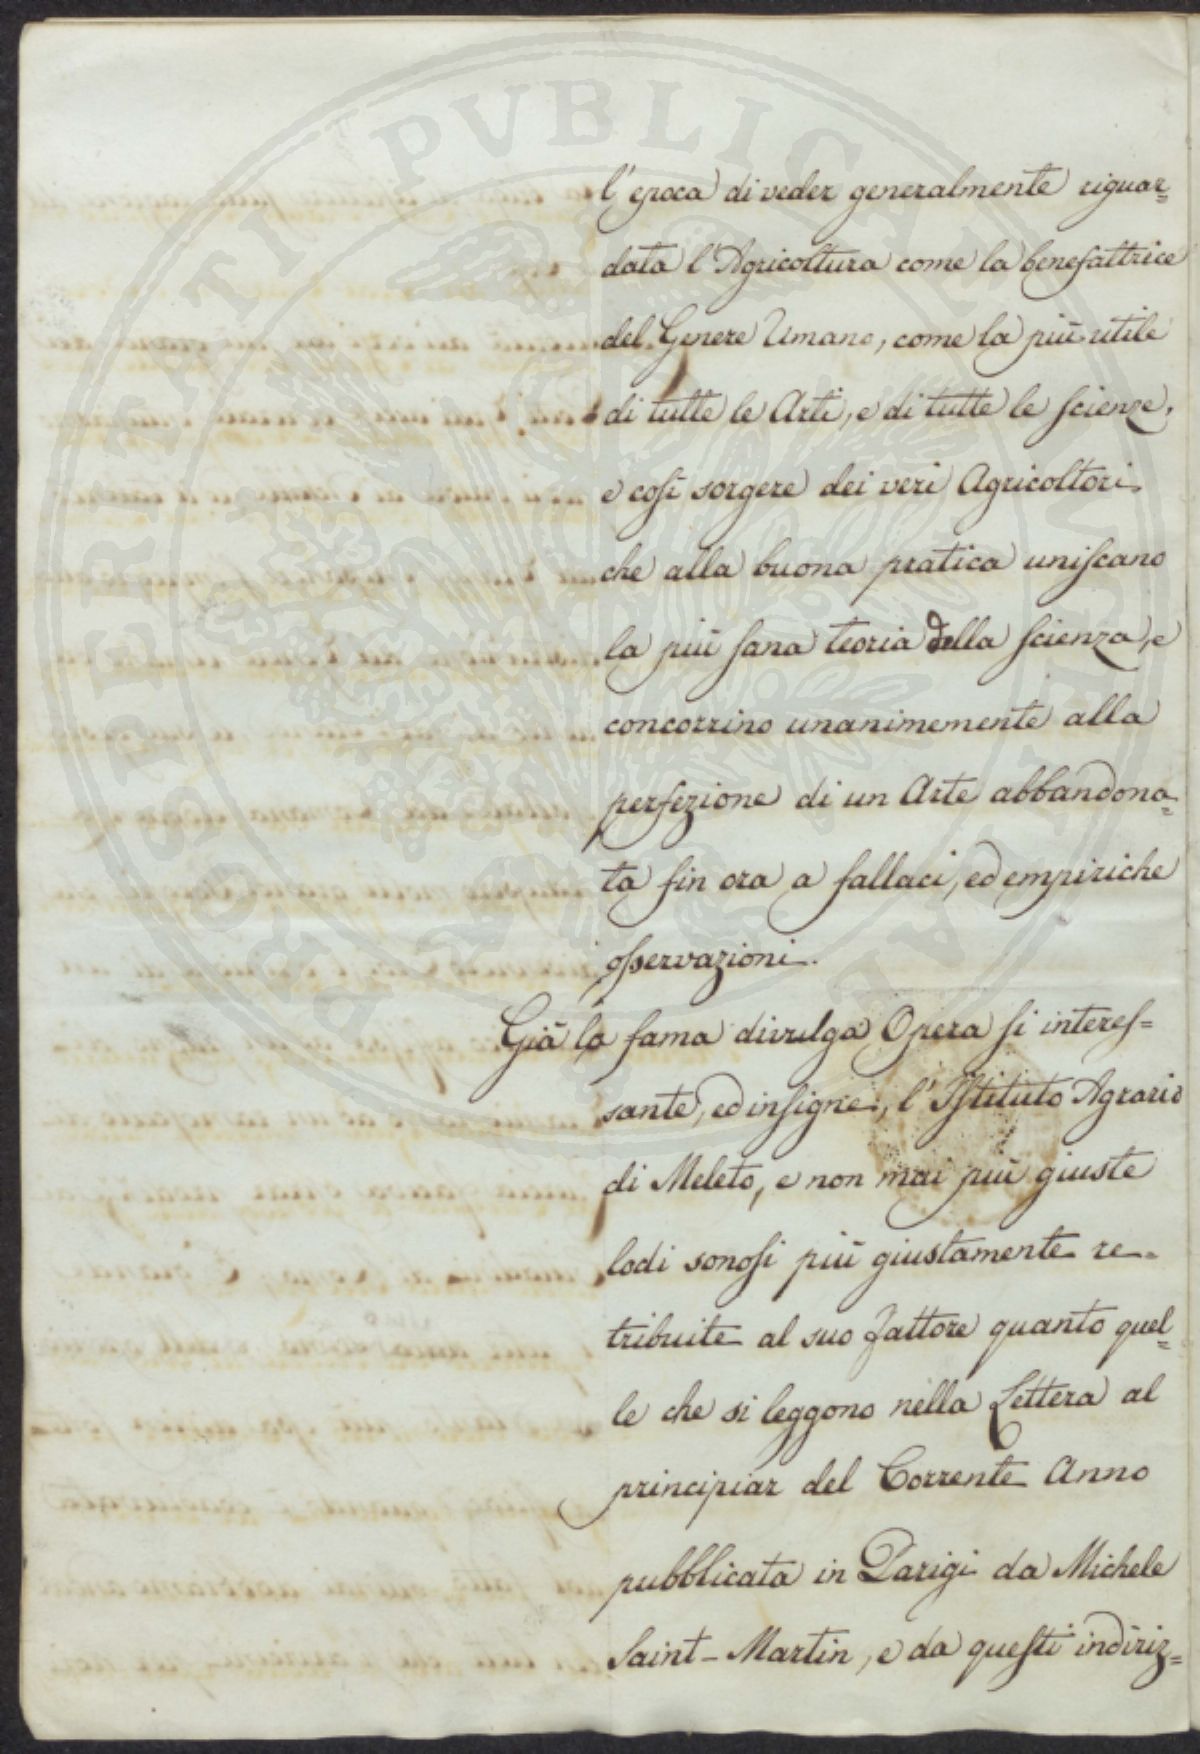 PROSPERITATI PVBLICAE AVGENDAE
l'epoca di veder generalmente riguar=
data l'Agricoltura come la benefattrice
del Genere Umano, come la più utile
di tutte le Arti, e di tutte le scienze,
e così sorgere dei veri Agricoltori
che alla buona pratica uniscano
la più sana teoria della scienza, e
concorrino unanimemente alla
perfezione di un Arte abbandona=
ta fin ora a fallaci, ed empiriche
osservazioni.
Già la fama divulga Opera si interes=
sante, ed insigne, l'Istituto Agrario
di Meleto, e non mai più giuste
lodi sonosi più giustamente re=
tribuite al suo Fattore quanto quel=
le che si leggono nella Lettera al
principiar del Corrente Anno
pubblicata in Parigi da Michele
Saint-Martin, e da questi indiriz=